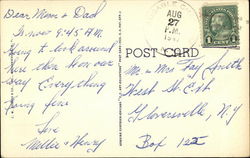 Dear Mom & Dad
Is now 9:45 A.M.
Going to look around
here then on our
way. Everything
going fine
Love
Millie & Henry
AUG
27
P.M.
POST CARD
1 CENT 1
Mr. & Mrs Fay Smith
West St. Ext
Gloversville, N.Y.
Box 122